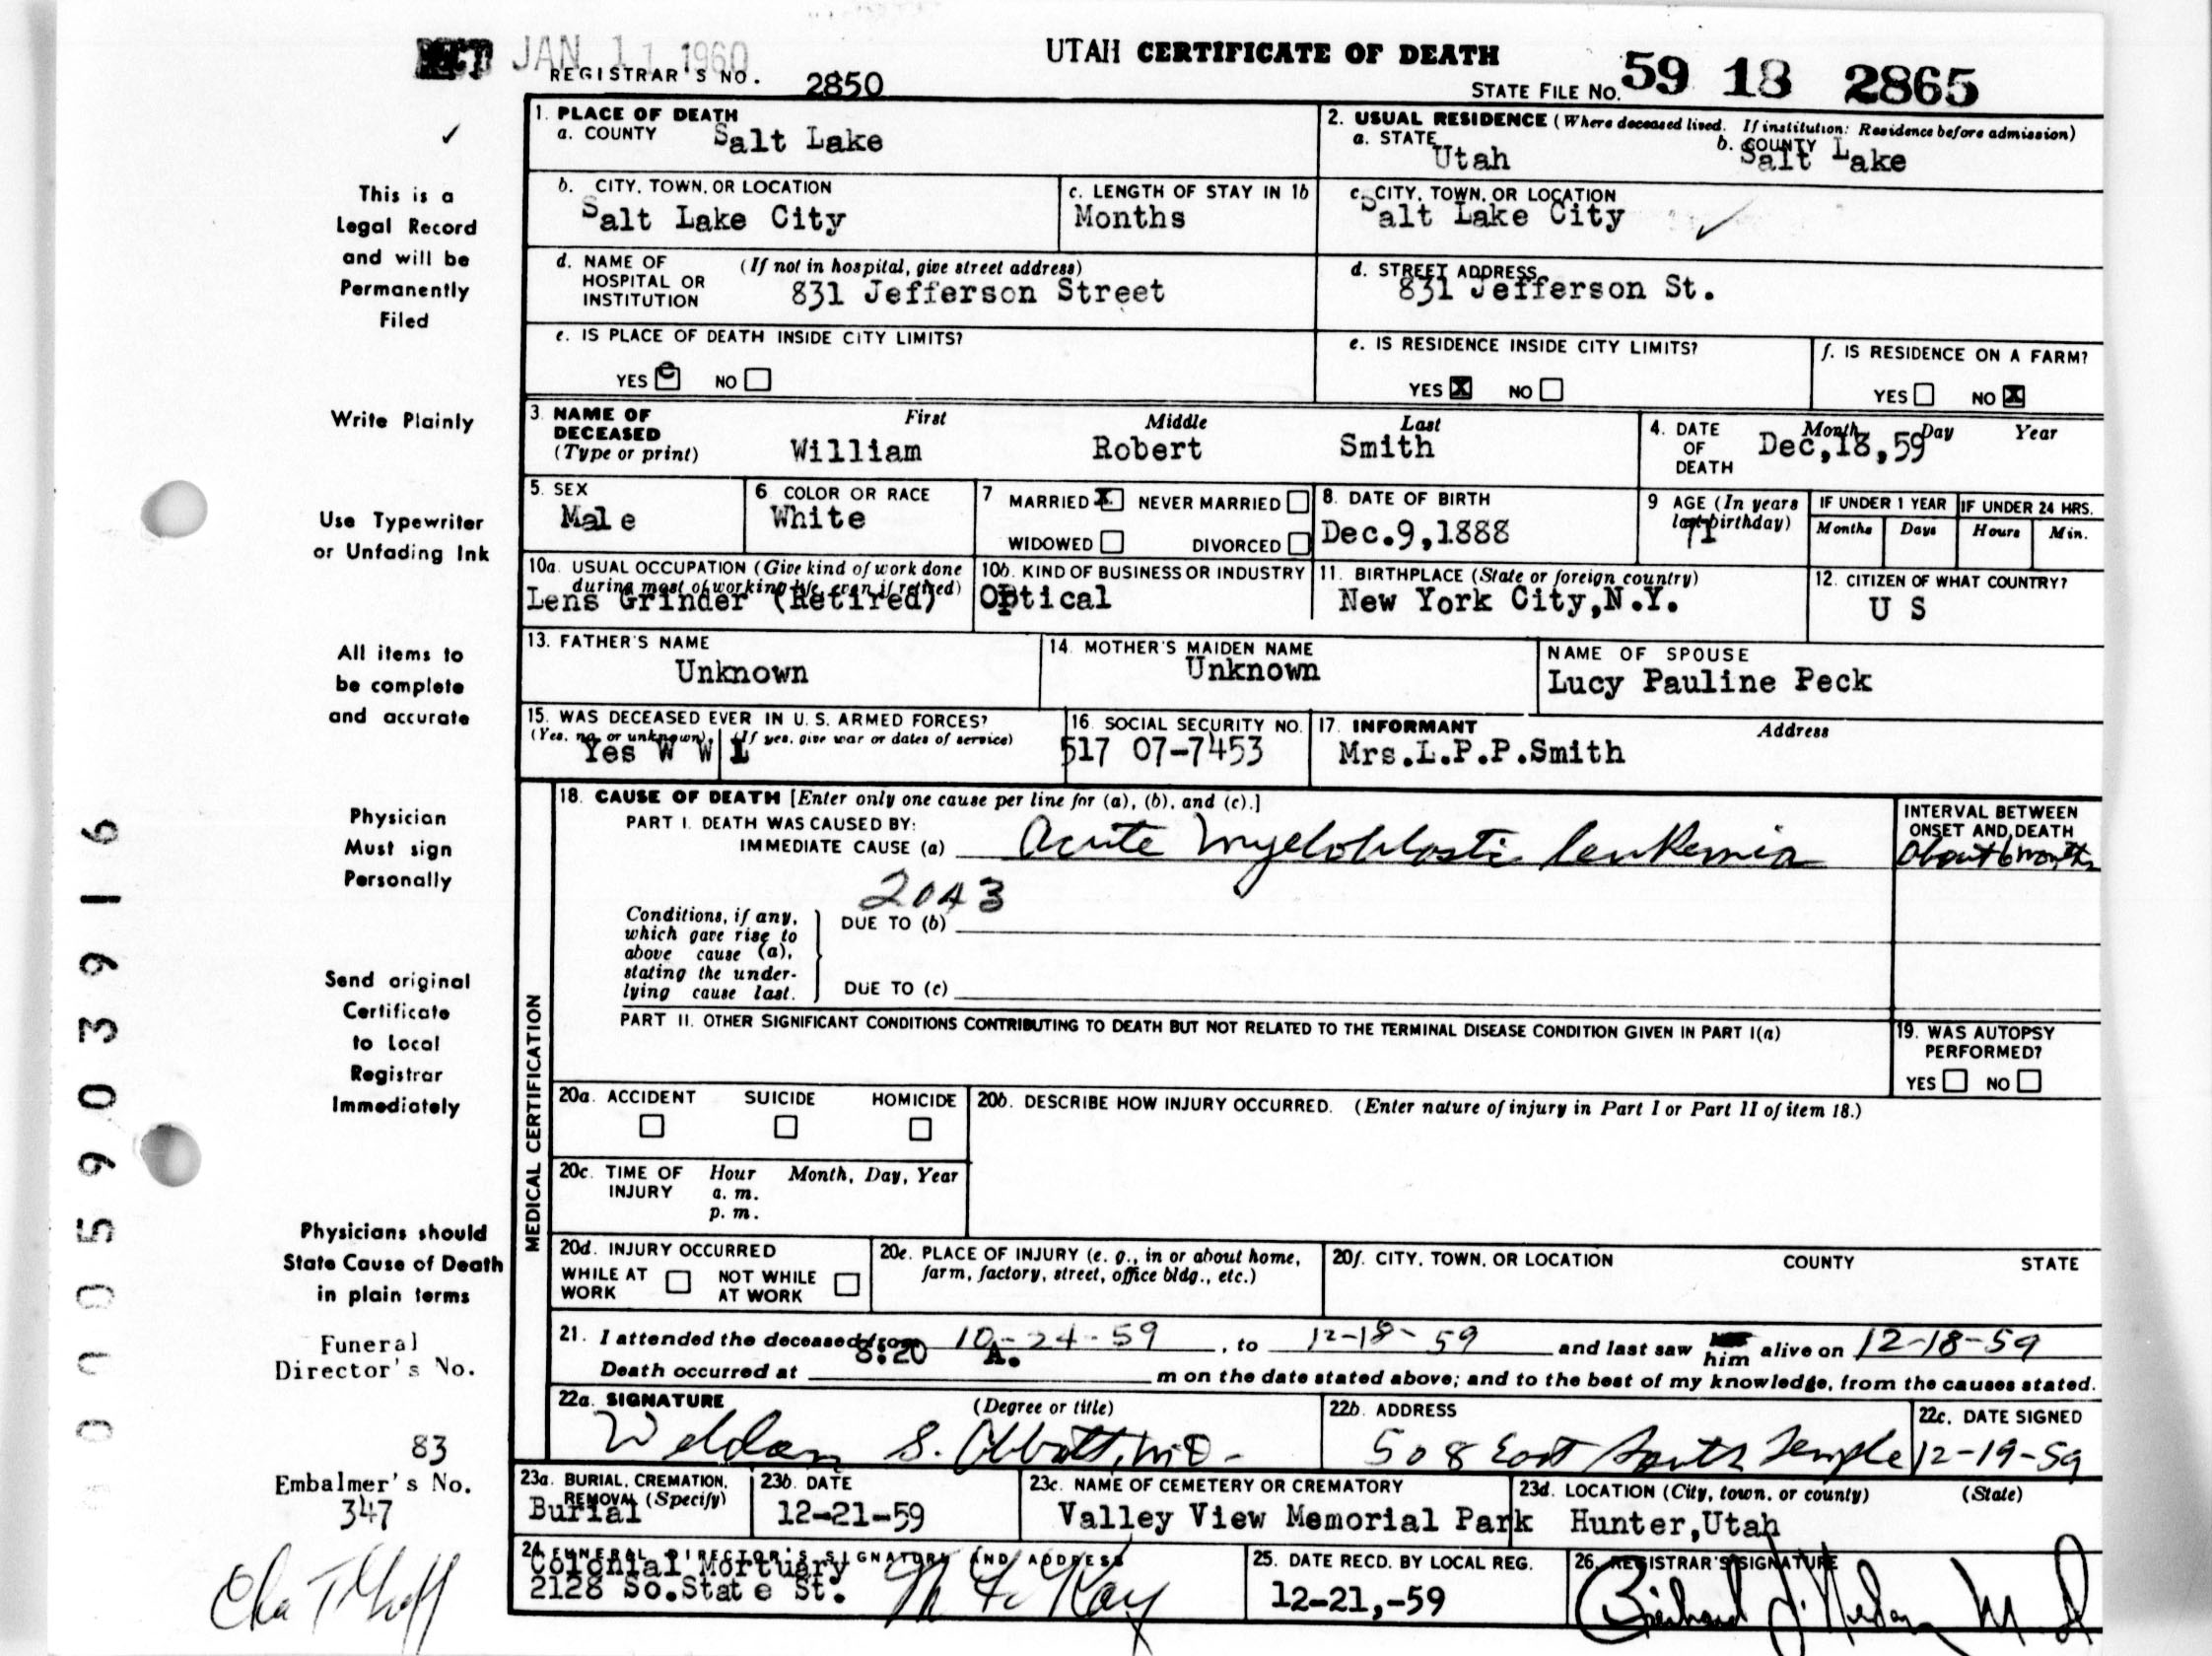 JAN 11 1960
UTAH CERTIFICATE OF DEATH
REGISTRAR'S NO. 2850
STATE FILE NO. 59 18 2865
1. PLACE OF DEATH
a. COUNTY Salt Lake
2. USUAL RESIDENCE (Where deceased lived. If institution: Residence before admission)
a. STATE Utah b. COUNTY Salt Lake
b. CITY, TOWN, OR LOCATION
Salt Lake City
c. LENGTH OF STAY IN 1b
Months
c. CITY, TOWN, OR LOCATION
Salt Lake City
d. NAME OF HOSPITAL OR INSTITUTION (If not in hospital, give street address)
831 Jefferson Street
d. STREET ADDRESS
831 Jefferson St.
e. IS PLACE OF DEATH INSIDE CITY LIMITS?
YES NO
e. IS RESIDENCE INSIDE CITY LIMITS?
YES X NO
f. IS RESIDENCE ON A FARM?
YES NO X
3. NAME OF DECEASED (Type or print)
First Middle Last
William Robert Smith
4. DATE OF DEATH Month Day Year
Dec,18,59
5. SEX
Male
6. COLOR OR RACE
White
7 MARRIED X NEVER MARRIED
WIDOWED DIVORCED
8. DATE OF BIRTH
Dec.9,1888
9 AGE (In years last birthday)
71
IF UNDER 1 YEAR IF UNDER 24 HRS.
Months Days Hours Min.
10a. USUAL OCCUPATION (Give kind of work done during most of working life, even if retired)
Lens Grinder (Retired)
10b. KIND OF BUSINESS OR INDUSTRY
Optical
11. BIRTHPLACE (State or foreign country)
New York City,N.Y.
12. CITIZEN OF WHAT COUNTRY?
U S
13. FATHER'S NAME
Unknown
14. MOTHER'S MAIDEN NAME
Unknown
NAME OF SPOUSE
Lucy Pauline Peck
15. WAS DECEASED EVER IN U. S. ARMED FORCES?
(Yes, no, or unknown) (If yes, give war or dates of service)
Yes W W I
16. SOCIAL SECURITY NO.
517 07-7453
17. INFORMANT Address
Mrs.L.P.P.Smith
MEDICAL CERTIFICATION
18. CAUSE OF DEATH [Enter only one cause per line for (a), (b), and (c).]
PART I. DEATH WAS CAUSED BY:
IMMEDIATE CAUSE (a) Acute myeloblastic leukemia
INTERVAL BETWEEN ONSET AND DEATH
About 6 months
2043
Conditions, if any, which gave rise to above cause (a), stating the underlying cause last.
DUE TO (b)
DUE TO (c)
PART II. OTHER SIGNIFICANT CONDITIONS CONTRIBUTING TO DEATH BUT NOT RELATED TO THE TERMINAL DISEASE CONDITION GIVEN IN PART I(a)
19. WAS AUTOPSY PERFORMED?
YES NO
20a. ACCIDENT SUICIDE HOMICIDE
20b. DESCRIBE HOW INJURY OCCURRED. (Enter nature of injury in Part I or Part II of item 18.)
20c. TIME OF INJURY Hour Month, Day, Year
a. m.
p. m.
20d. INJURY OCCURRED
WHILE AT WORK NOT WHILE AT WORK
20e. PLACE OF INJURY (e. g., in or about home, farm, factory, street, office bldg., etc.)
20f. CITY, TOWN, OR LOCATION COUNTY STATE
21. I attended the deceased from 10-24-59, to 12-18-59 and last saw him alive on 12-18-59
Death occurred at 8:20 A. m on the date stated above; and to the best of my knowledge, from the causes stated.
22a. SIGNATURE (Degree or title)
Weldon S. Abbott, M.D.
22b. ADDRESS
508 East South Temple
22c. DATE SIGNED
12-19-59
23a. BURIAL, CREMATION, REMOVAL (Specify)
Burial
23b. DATE
12-21-59
23c. NAME OF CEMETERY OR CREMATORY
Valley View Memorial Park
23d. LOCATION (City, town, or county) (State)
Hunter,Utah
24. FUNERAL DIRECTOR'S SIGNATURE AND ADDRESS
Colonial Mortuary
2128 So.State St.
25. DATE RECD. BY LOCAL REG.
12-21,-59
26. REGISTRAR'S SIGNATURE
This is a
Legal Record
and will be
Permanently
Filed
Write Plainly
Use Typewriter
or Unfading Ink
All items to
be complete
and accurate
Physician
Must sign
Personally
Send original
Certificate
to Local
Registrar
Immediately
Physicians should
State Cause of Death
in plain terms
Funeral
Director's No.
83
Embalmer's No.
347
005903916